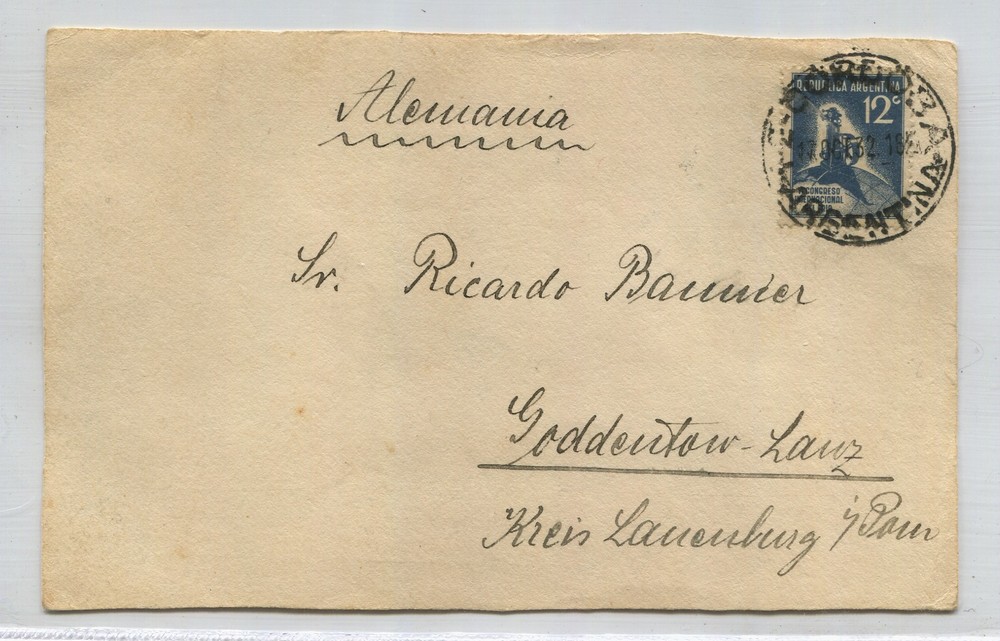 Alemania
REPUBLICA ARGENTINA
12c
CONGRESO
INTERNACIONAL
DEL FRIO
CORDOBA
17 OCT 32 18
ARGENTINA
Sr. Ricardo Baumier
Goddentow-Lanz
Kreis Lauenburg i/Pom